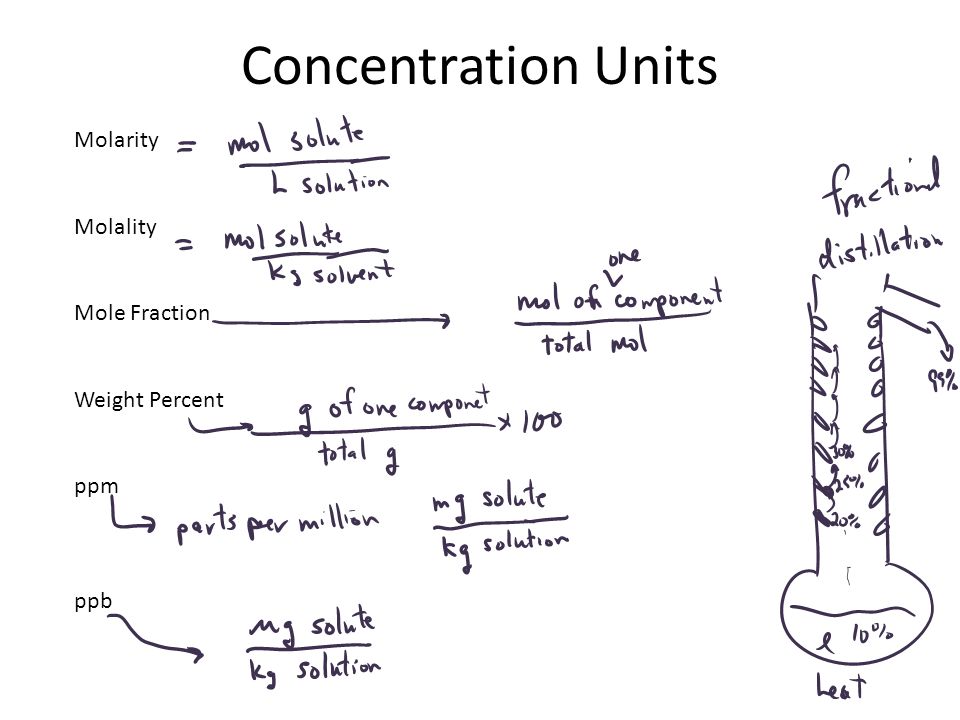 Concentration Units
Molarity = mol solute
L solution
Molality = mol solute
kg solvent
Mole Fraction
one
mol of component
total mol
Weight Percent
g of one componet × 100
total g
ppm
parts per million
mg solute
kg solution
ppb
μg solute
kg solution
fractional
distillation
99%
30%
25%
20%
10%
heat